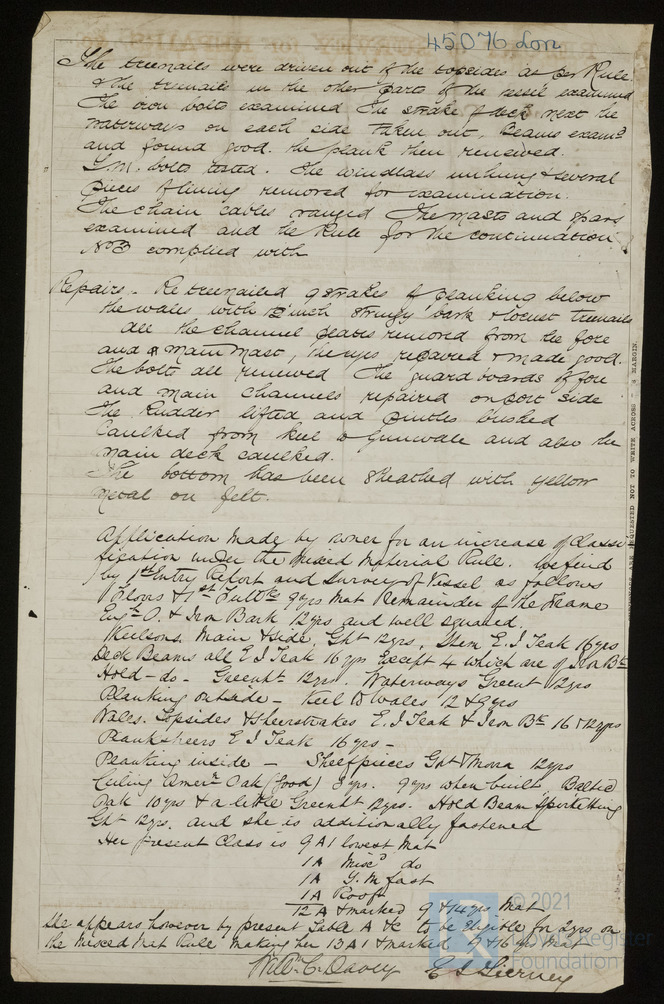 45076 Lon
The treenails were driven out of the topsides as per Rule
& the treenails in the other parts of the vessel examined
The iron bolts examined The strake of deck next the
waterways on each side taken out, Beams examd
and found good. the plank then renewed.
Y.M. bolts tested. The windlass unhung & several
pieces of lining removed for examination.
The chain cables ranged The masts and spars
examined and the Rule for the continuation
No 3 complied with
Repairs - Re treenailed 9 strakes of planking below
the wales, with inch Stringy bark & locust treenails
all the channel plates removed from the fore
and main mast, the eyes repaired & made good.
The bolts all renewed The guard boards of fore
and main channels repaired on port side
The Rudder lifted and pintles bushed
Caulked from keel to Gunwale and also the
main deck caulked.
The bottom has been Sheathed with yellow
metal on felt.
Application made by owner for an increase of Classi
fication under the Mixed Material Rule. We find
by 1st Entry Report and Survey of Vessel as follows
Floors & 1st Futtks 9 yrs Mat Remainder of the Frame
Engh O. & Iron Bark 12 yrs and well squared.
Keelsons. Main & side, Ght 12 yrs, Stem E I Teak 16 yrs
Deck Beams all E I Teak 16 yrs Except 4 which are of Iron Bk
Hold - do - Greenht 12 yrs. Waterways Greent 12 yrs
Planking outside - Keel to Wales 12 & 9 yrs
Wales. Topsides & Sheerstrakes E. I Teak & Iron Bk 16 & 12 yrs
Plank sheers E I Teak 16 yrs -
Planking inside - Shelfpieces Ght & Mora 12 yrs
Ceiling Amern Oak (good) 8 yrs. 9 yrs when built, Baltic
Oak 10 yrs & a little Greenht 12 yrs. Hold Beam Spirketting
Ght 12 yrs. and she is additionally fastened
Her present Class is 9 A1 lowest Mat
1 A Mixd do
1 A Y. M fast
1 A Rooft
12 A & marked 9 & 14 yrs Mat
She appears however by present Table A to be Eligible for 2 yrs on
the Mixed Mat Rule making her 13 A1 & marked 9 & 16 yrs Mat
Wm C. Davey E S Tierney
REQUESTED NOT TO WRITE ACROSS MARGIN.
© 2021
Lloyd's Register
Foundation